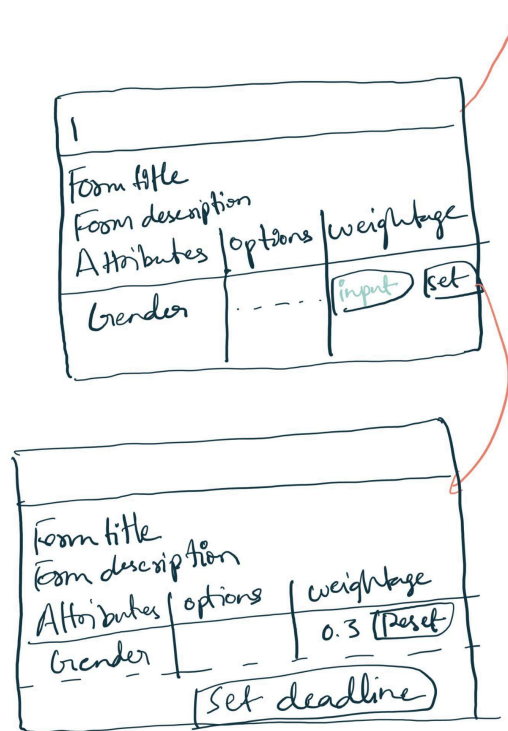 Form title
Form description
Attributes options weightage
Gender ..... input set
Form title
Form description
Attributes options weightage
Gender 0.3 Reset
Set deadline